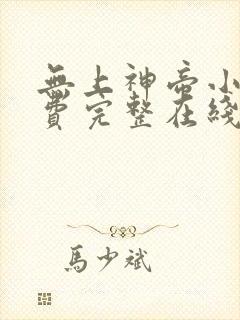 無上神帝小
費完整在綫
馬少斌